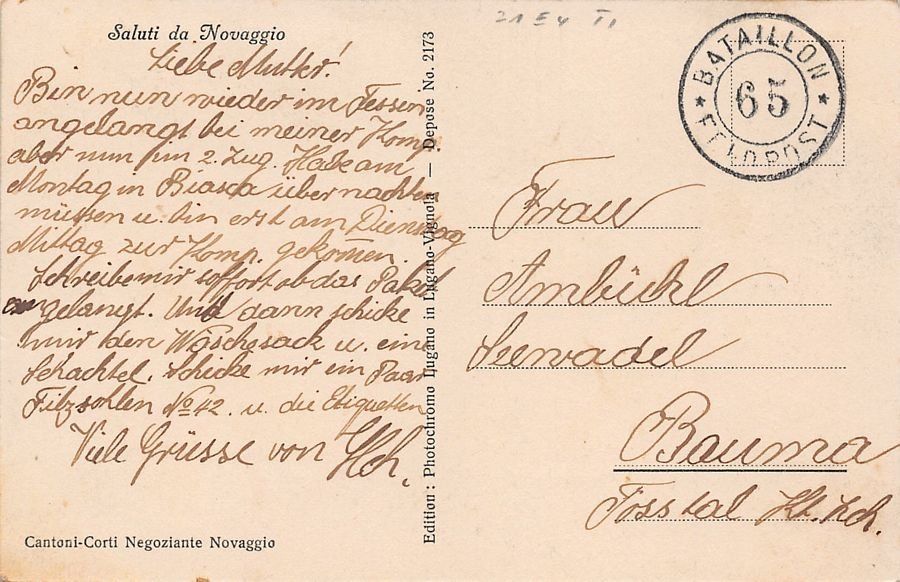 Saluti da Novaggio
Liebe Mutter!
Bin nun wieder im Tessin
angelangt bei meiner Komp.
aber nun im 2. Zug. Habe am
Montag in Biasca übernachten
müssen u. bin erst am Dienstag
Mittag zur Komp. gekommen.
Schreibe mir soffort ob das Paket
angelangt. Und dann schicke
mir den Wäschesack u. eine
Schachtel. Schicke mir ein Paar
Filzsohlen No 42. u. die Etiquetten
Viele Grüsse von Hch.
Cantoni-Corti Negoziante Novaggio
Edition: Photochromo Lugano in Lugano-Vignola — Depose No. 2173
BATAILLON
65
FELDPOST
Frau
Ambühl
Seewadel
Bauma
Tösstal Kt. Zch.